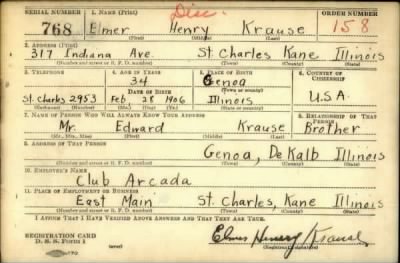 SERIAL NUMBER 1. NAME (Print) Disc. ORDER NUMBER
768 Elmer Henry Krause 158
(First) (Middle) (Last)
2. ADDRESS (Print)
317 Indiana Ave. St. Charles Kane Illinois
(Number and street or R. F. D. number) (Town) (County) (State)
3. TELEPHONE 4. AGE IN YEARS 5. PLACE OF BIRTH 6. COUNTRY OF CITIZENSHIP
34 Genoa
DATE OF BIRTH (Town or county)
St. Charles 2953 Feb 28 1906 Illinois U.S.A.
(Exchange) (Number) (Mo.) (Day) (Yr.) (State or country)
7. NAME OF PERSON WHO WILL ALWAYS KNOW YOUR ADDRESS 8. RELATIONSHIP OF THAT PERSON
Mr. Edward Krause Brother
(Mr., Mrs., Miss) (First) (Middle) (Last)
9. ADDRESS OF THAT PERSON
Genoa, DeKalb Illinois
(Number and street or R. F. D. number) (Town) (County) (State)
10. EMPLOYER'S NAME
Club Arcada
11. PLACE OF EMPLOYMENT OR BUSINESS
East Main St. Charles, Kane Illinois
(Number and street or R. F. D. number) (Town) (County) (State)
I AFFIRM THAT I HAVE VERIFIED ABOVE ANSWERS AND THAT THEY ARE TRUE.
REGISTRATION CARD
D. S. S. Form 1 Elmer Henry Krause
(Registrant's signature)